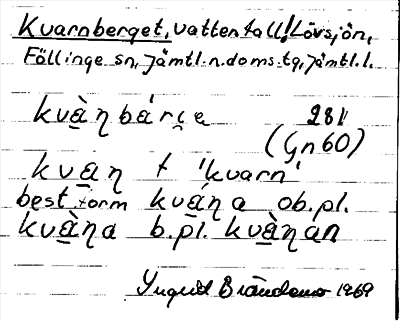 Kvarnberget, vattenfall! Lövsjön,
Föllinge sn, Jämtl. n. doms. tg, Jämtl. l.
kvὰ̱ŋbárçe 281
(Gn 60)
kvα̱ŋ f 'kvarn'
best form kvά̱ŋa ob.pl.
kvὰ̱ŋa b.pl. kvὰ̱ŋan
Ingrid 1969